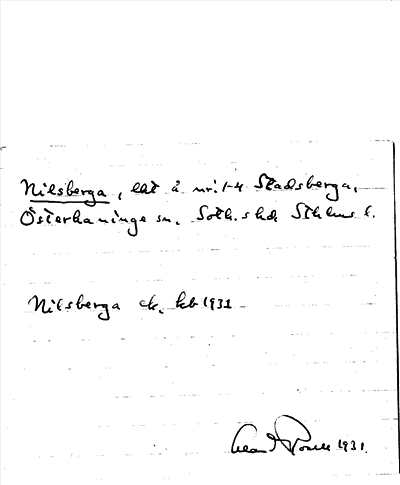 Nilsberga, lät å nr: 1-4 Stadsberga,
Österhaninge sn. Soth. shd. Sthlms l.
Nilsberga ek. kb 1931
1931.